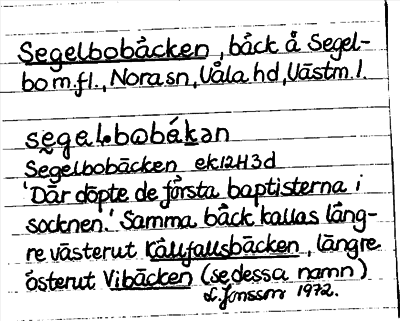 Segelbobäcken, bäck å Segel-
bo m.fl., Nora sn, Våla hd, Västm.l.
segalbobäkan
Segelbobäcken ek 12H3d
'Där döpte de första baptisterna i
socknen.' Samma bäck kallas läng-
re västerut Källfallsbäcken, längre
österut Vibäcken (se dessa namn)
Jonsson 1972.